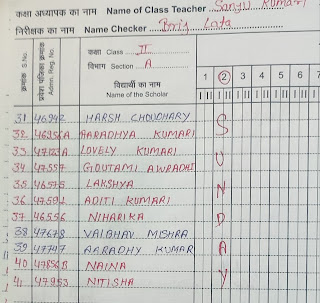 कक्षा अध्यापक का नाम Name of Class Teacher Sanju Kumari
निरीक्षक का नाम Name Checker Brij Lata
क्रमांक S.No.
प्रवेश पंजिका क्रमांक Admn. Reg. No.
कक्षा Class II
विभाग Section A
विद्यार्थी का नाम
Name of the Scholar
1 2 3 4
I II I II I II I II
31 46942 HARSH CHOUDHARY
32 46956A AARADHYA KUMARI
33 47123A LOVELY KUMARI
34 47557 GIOUTAMI AWRADHI
35 46575 LAKSHYA
36 47591 ADITI KUMARI
37 46556 NIHARIKA
38 47678 VAIBHAV MISHRA
39 47747 AARADHY KUMAR
40 47856B NAINA
41 47953 NITISHA
S
U
N
D
A
Y